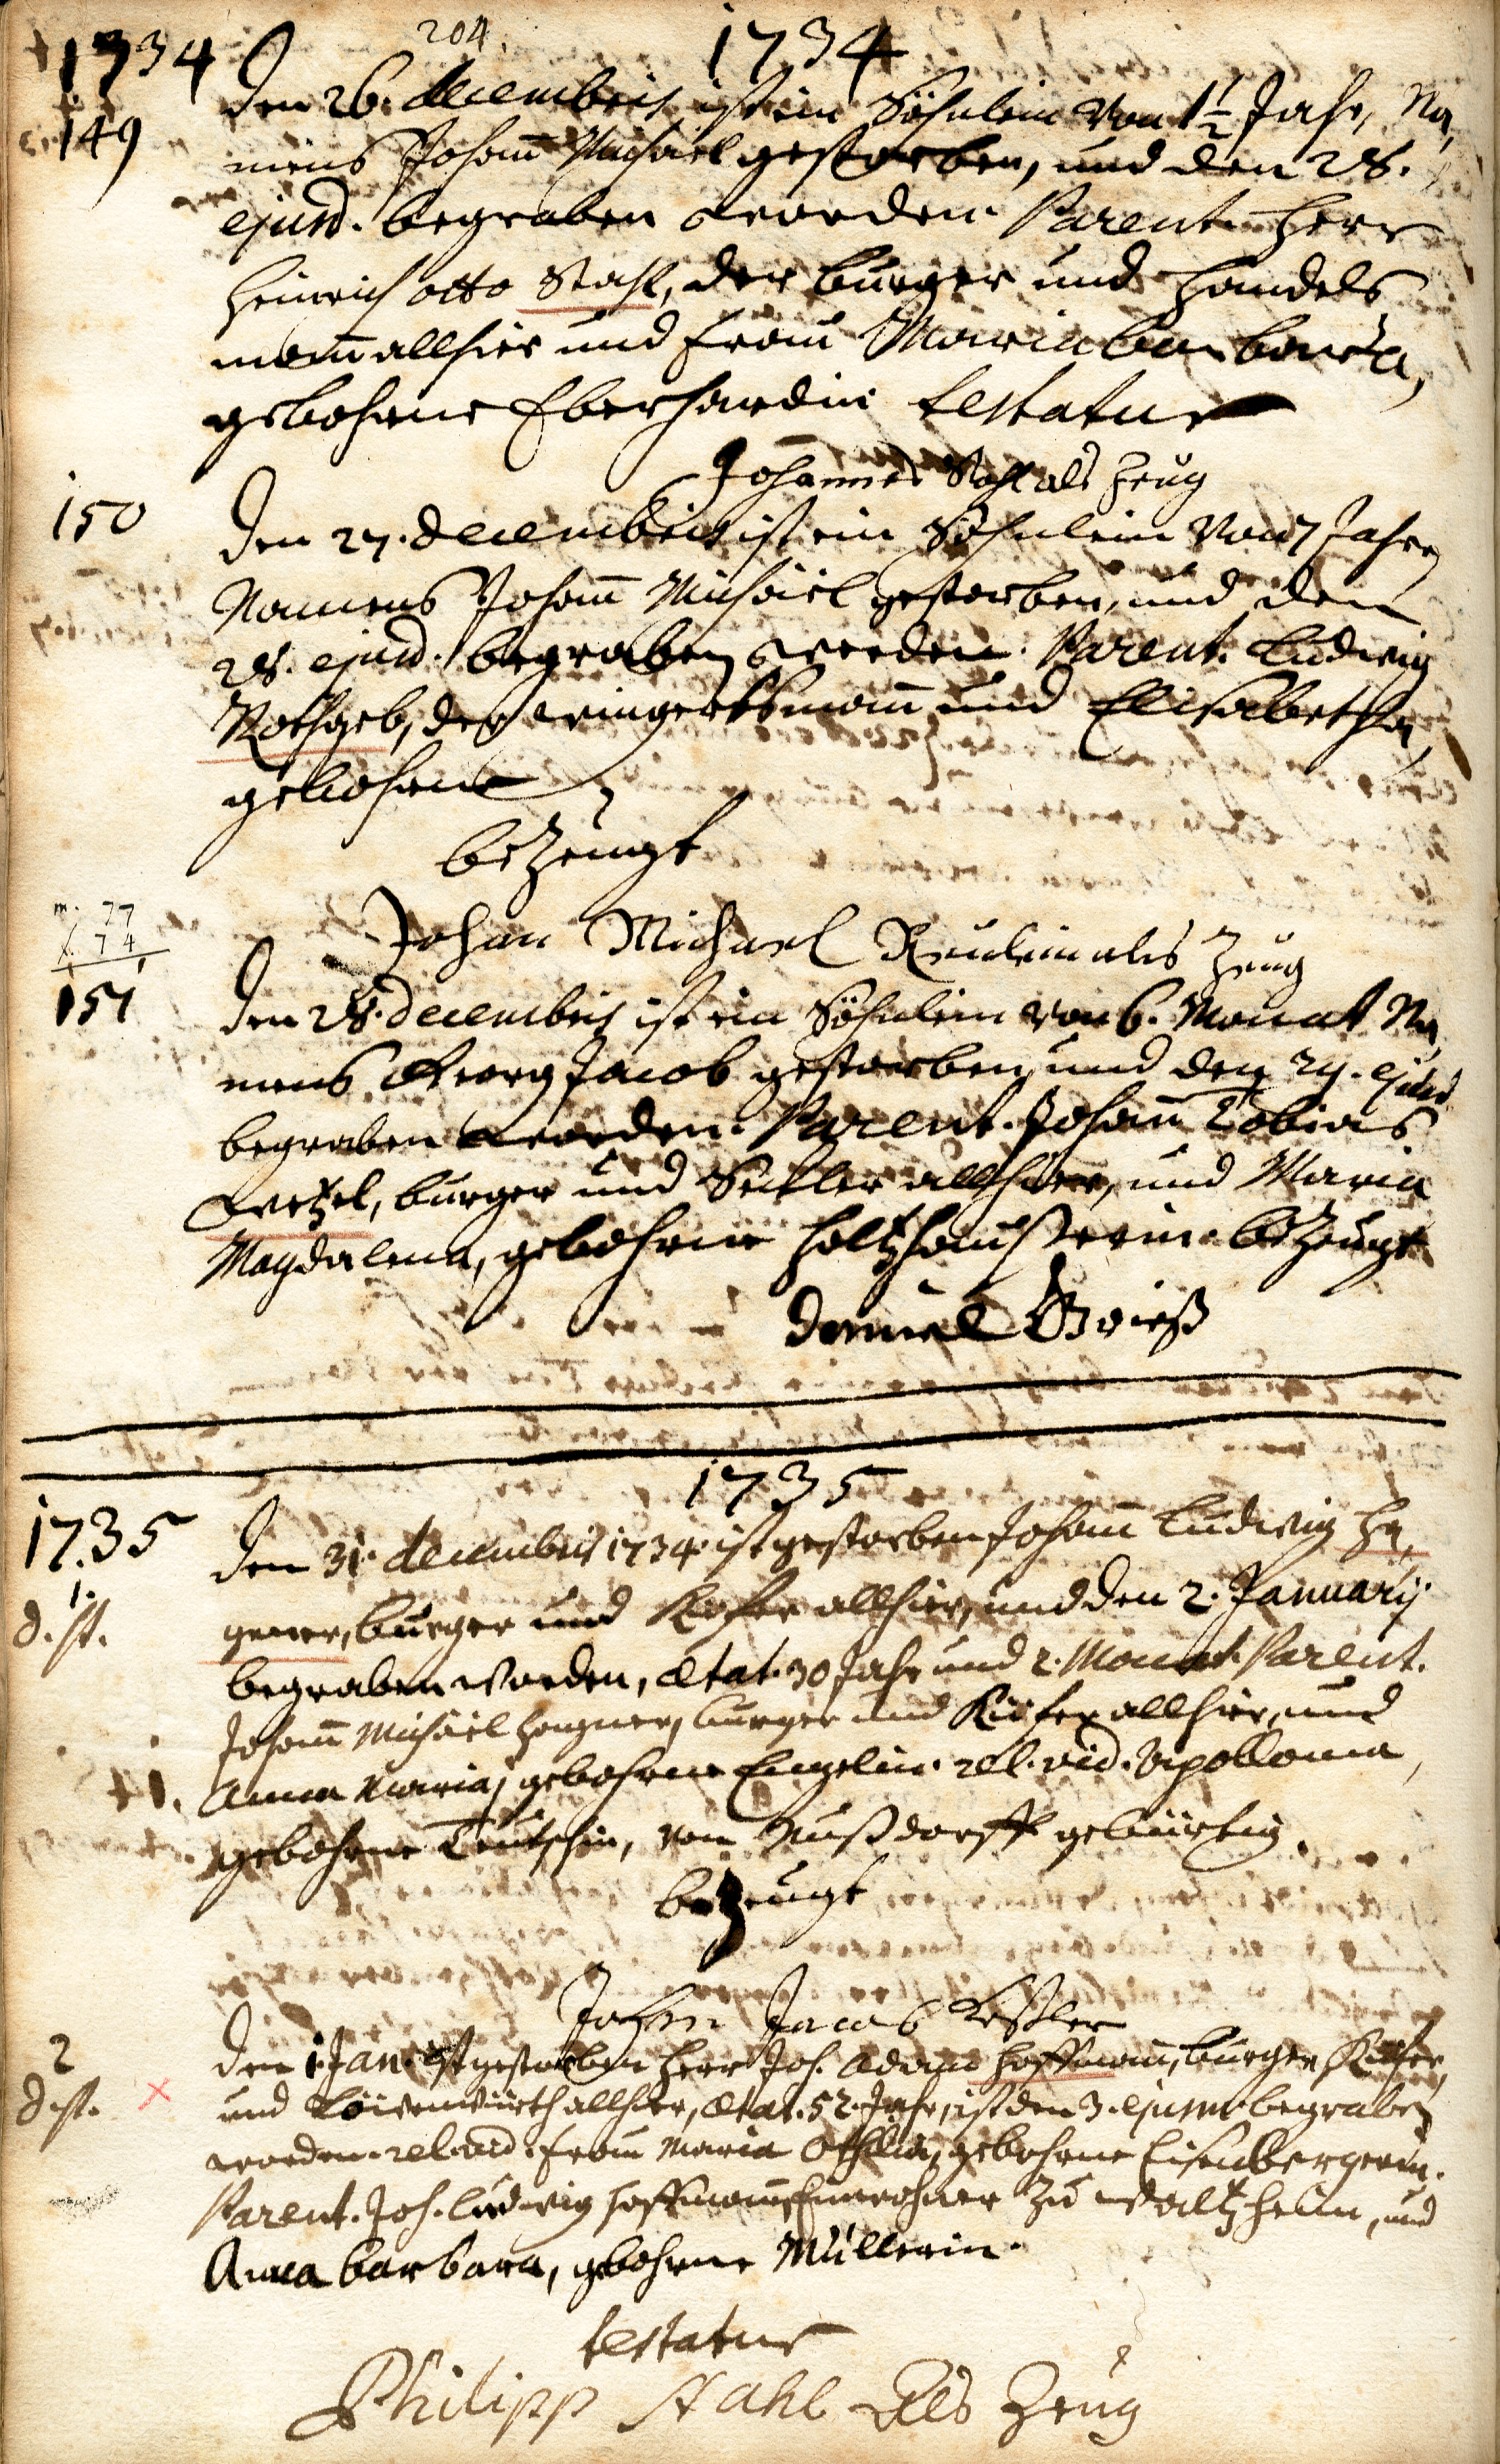 204.
1734 1734
149 Den 26. decembris ist ein Söhnlein von 1½ Jahr, Na,
mens Johann Michäel gestorben, und den 28.
ejusd. begraben worden. Parent. Herr
Heinrich Otto Stahl, der burger und Handels,
mann allhier und Frau Maria barbara,
gebohrne Eberhardin testatur
Johannes Stahl als Zeug
150 Den 27. decembris ist ein Söhnlein von 7 Jahren
Namens Johann Michäel gestorben, und den
28. ejusd. begraben worden. Parent. Ludwig
Rothgeb, der wingertsmann und Elisabetha,
gebohrne
bezeugt
m. 77
f. 74
Johan Michael Reulein als Zeug
151 Den 28. decembris ist ein Söhnlein von 6. Monat Na,
mens Georg Jacob gestorben, und den 29. ejusd.
begraben worden. Parent. Johann Tobias
Wetzel, burger und Seckler allhier, und Maria
Magdalena, gebohrne Holtzhaußerin. bezeugt
Daniel Grieß
1735
1735 Den 31. decembris 1734. ist gestorben Johann Ludwig Ha,
1. d. st. gener, burger und Kiefer allhier, und den 2. Januarij
begraben worden, Ætat. 30 Jahr und 2. Monat. Parent.
Johann Michäel Hagener, burger und Kiefer allhier, und
Anna Maria, gebohrne Engelin. rel. vid. Apollonia,
gebohrne Teutschin, von Nußdorff gebürtig.
bezeugt
Johan Jacob Keßler
2 Den 1. Jan. ist gestorben Herr Joh. Adam Hoffmann, burger, Kiefer,
d. st. und Löwenwürth allhier, Ætat. 52. Jahr, ist den 3. ejusd. begraben
worden. rel. vid. Frau Maria Othilia, gebohrne Eisenbergerin.
Parent. Joh. Ludwig Hoffmann, Einwohner zu Waltzheim, und
Anna barbara, gebohrne Müllerin.
testatur
Philipp Stahl Als Zeug